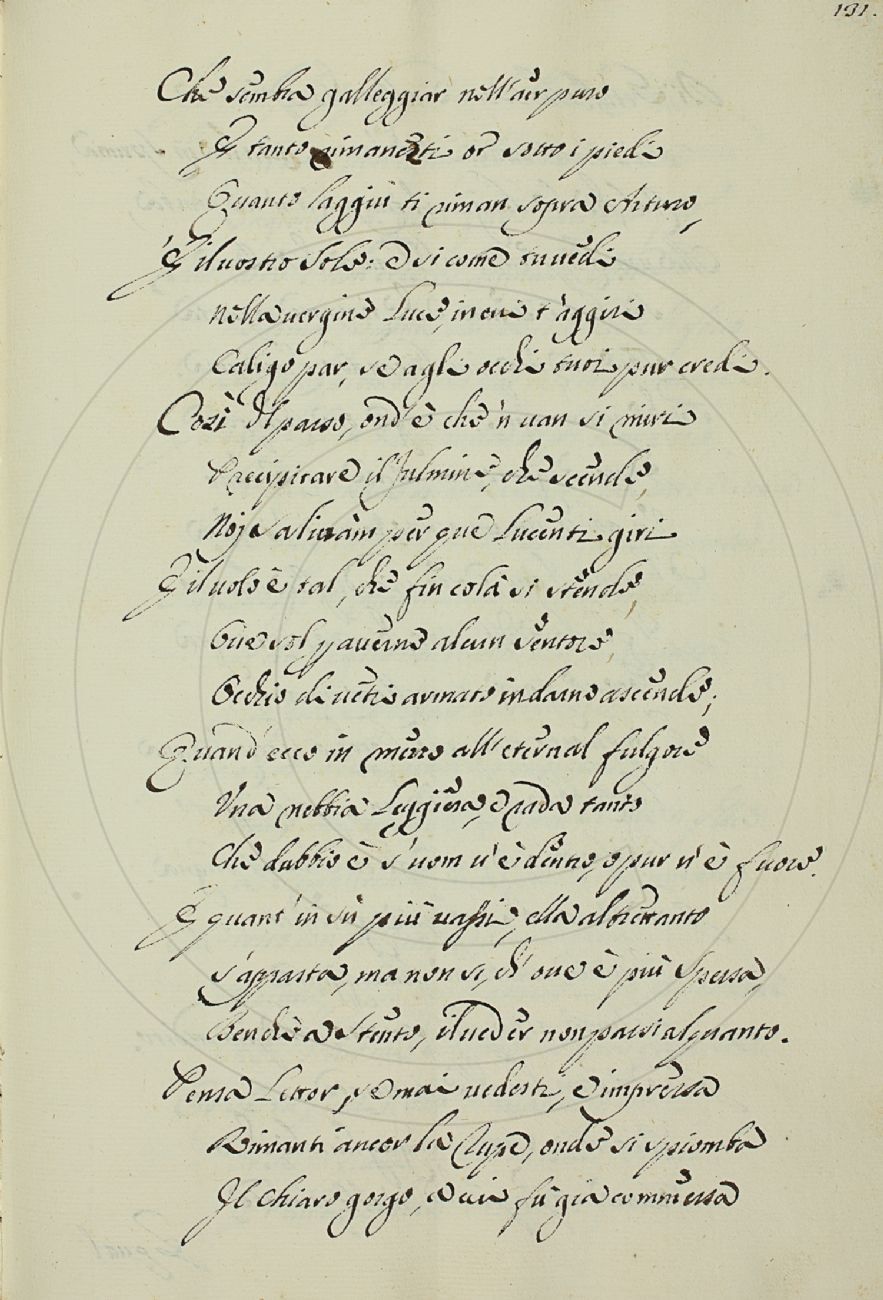 131.
Che sembra galleggiar nell'aer puro
E tanto rimanerti or sotto i piedi
Quanto laggiù ti riman sopra Arturo,
È il vostro Sole: e si come tu vedi
Nella vergine Luce, in cui t'aggiri
Caligo par, se agli occhi tuoi pur credi.
Così al passo, ond'è che 'n van si miri
Precipitare il fulmine, che scende,
Noi salivam per que' Lucenti giri
E il volo è tal, che fin colà si stende,
Ove sol p averne alcun sentore,
Occhio di vetri armato indarno ascende;
Quand'ecco in mezzo all'eternal fulgore
Una nebbia Leggiera, e rada tanto
Che dubbio è s'uom v'è dentro, o pur v'è fuore.
E quant'in sù più vassi, ella altrettanto
S'appasta, ma non sì, ch'ove è più spessa,
Benchè a stento, il veder non passi alquanto.
Pensa Lettor, se mai vedesti, e impressa
Rimanti ancor la Rupe, onde si spiomba
Il chiaro gorgo, a cui fù già commessa